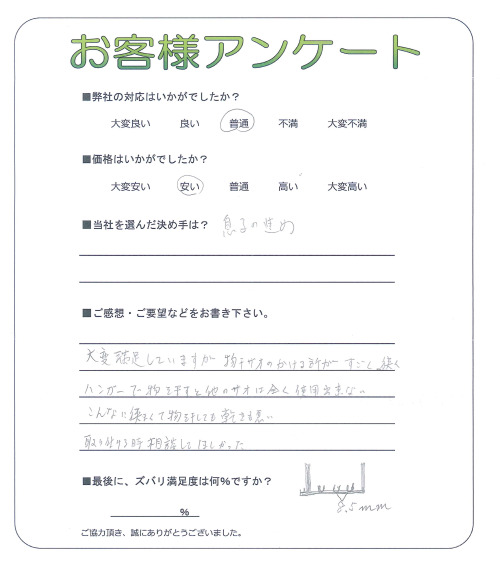 お客様アンケート
■弊社の対応はいかがでしたか？
大変良い 良い 普通 不満 大変不満
■価格はいかがでしたか？
大変安い 安い 普通 高い 大変高い
■当社を選んだ決め手は？ 息子の進め
■ご感想・ご要望などをお書き下さい。
大変満足していますが 物干サオのかける所が すごく狭く
ハンガーで物を干すと他のサオは全く使用出来ない
こんなに狭くて物を干しても乾きも悪い
取り付ける時相談してほしかった
■最後に、ズバリ満足度は何％ですか？
％
8.5mm
ご協力頂き、誠にありがとうございました。